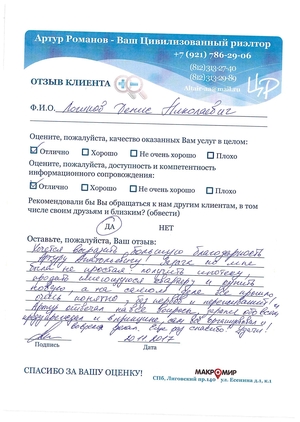 Артур Романов - Ваш Цивилизованный риэлтор
+7 (921) 786-29-06
(812) 313-27-40
(812) 313-29-80
ОТЗЫВ КЛИЕНТА
Ф.И.О. Логинов Денис Николаевич
Оцените, пожалуйста, качество оказанных Вам услуг в целом:
Отлично Хорошо Не очень хорошо Плохо
Оцените, пожалуйста, доступность и компетентность
информационного сопровождения:
Отлично Хорошо Не очень хорошо Плохо
Рекомендовали бы Вы обращаться к нам другим клиентам, в том
числе своим друзьям и близким? (обвести)
ДА НЕТ
Оставьте, пожалуйста, Ваш отзыв:
Хочется выразить большую благодарность
Артуру Анатольевичу. Задача
была не простая получить ипотеку,
продать имеющуюся квартиру и купить
новую, а на самом деле все прошло
понятно, без нервов и переживаний!
Артур отвечал на все вопросы,
спасибо! Удачи!
20.11.2017
Подпись Дата
СПАСИБО ЗА ВАШУ ОЦЕНКУ!
МАКРОМИР
СПб, Лиговский пр.140 ул. Есенина д.1, к.1